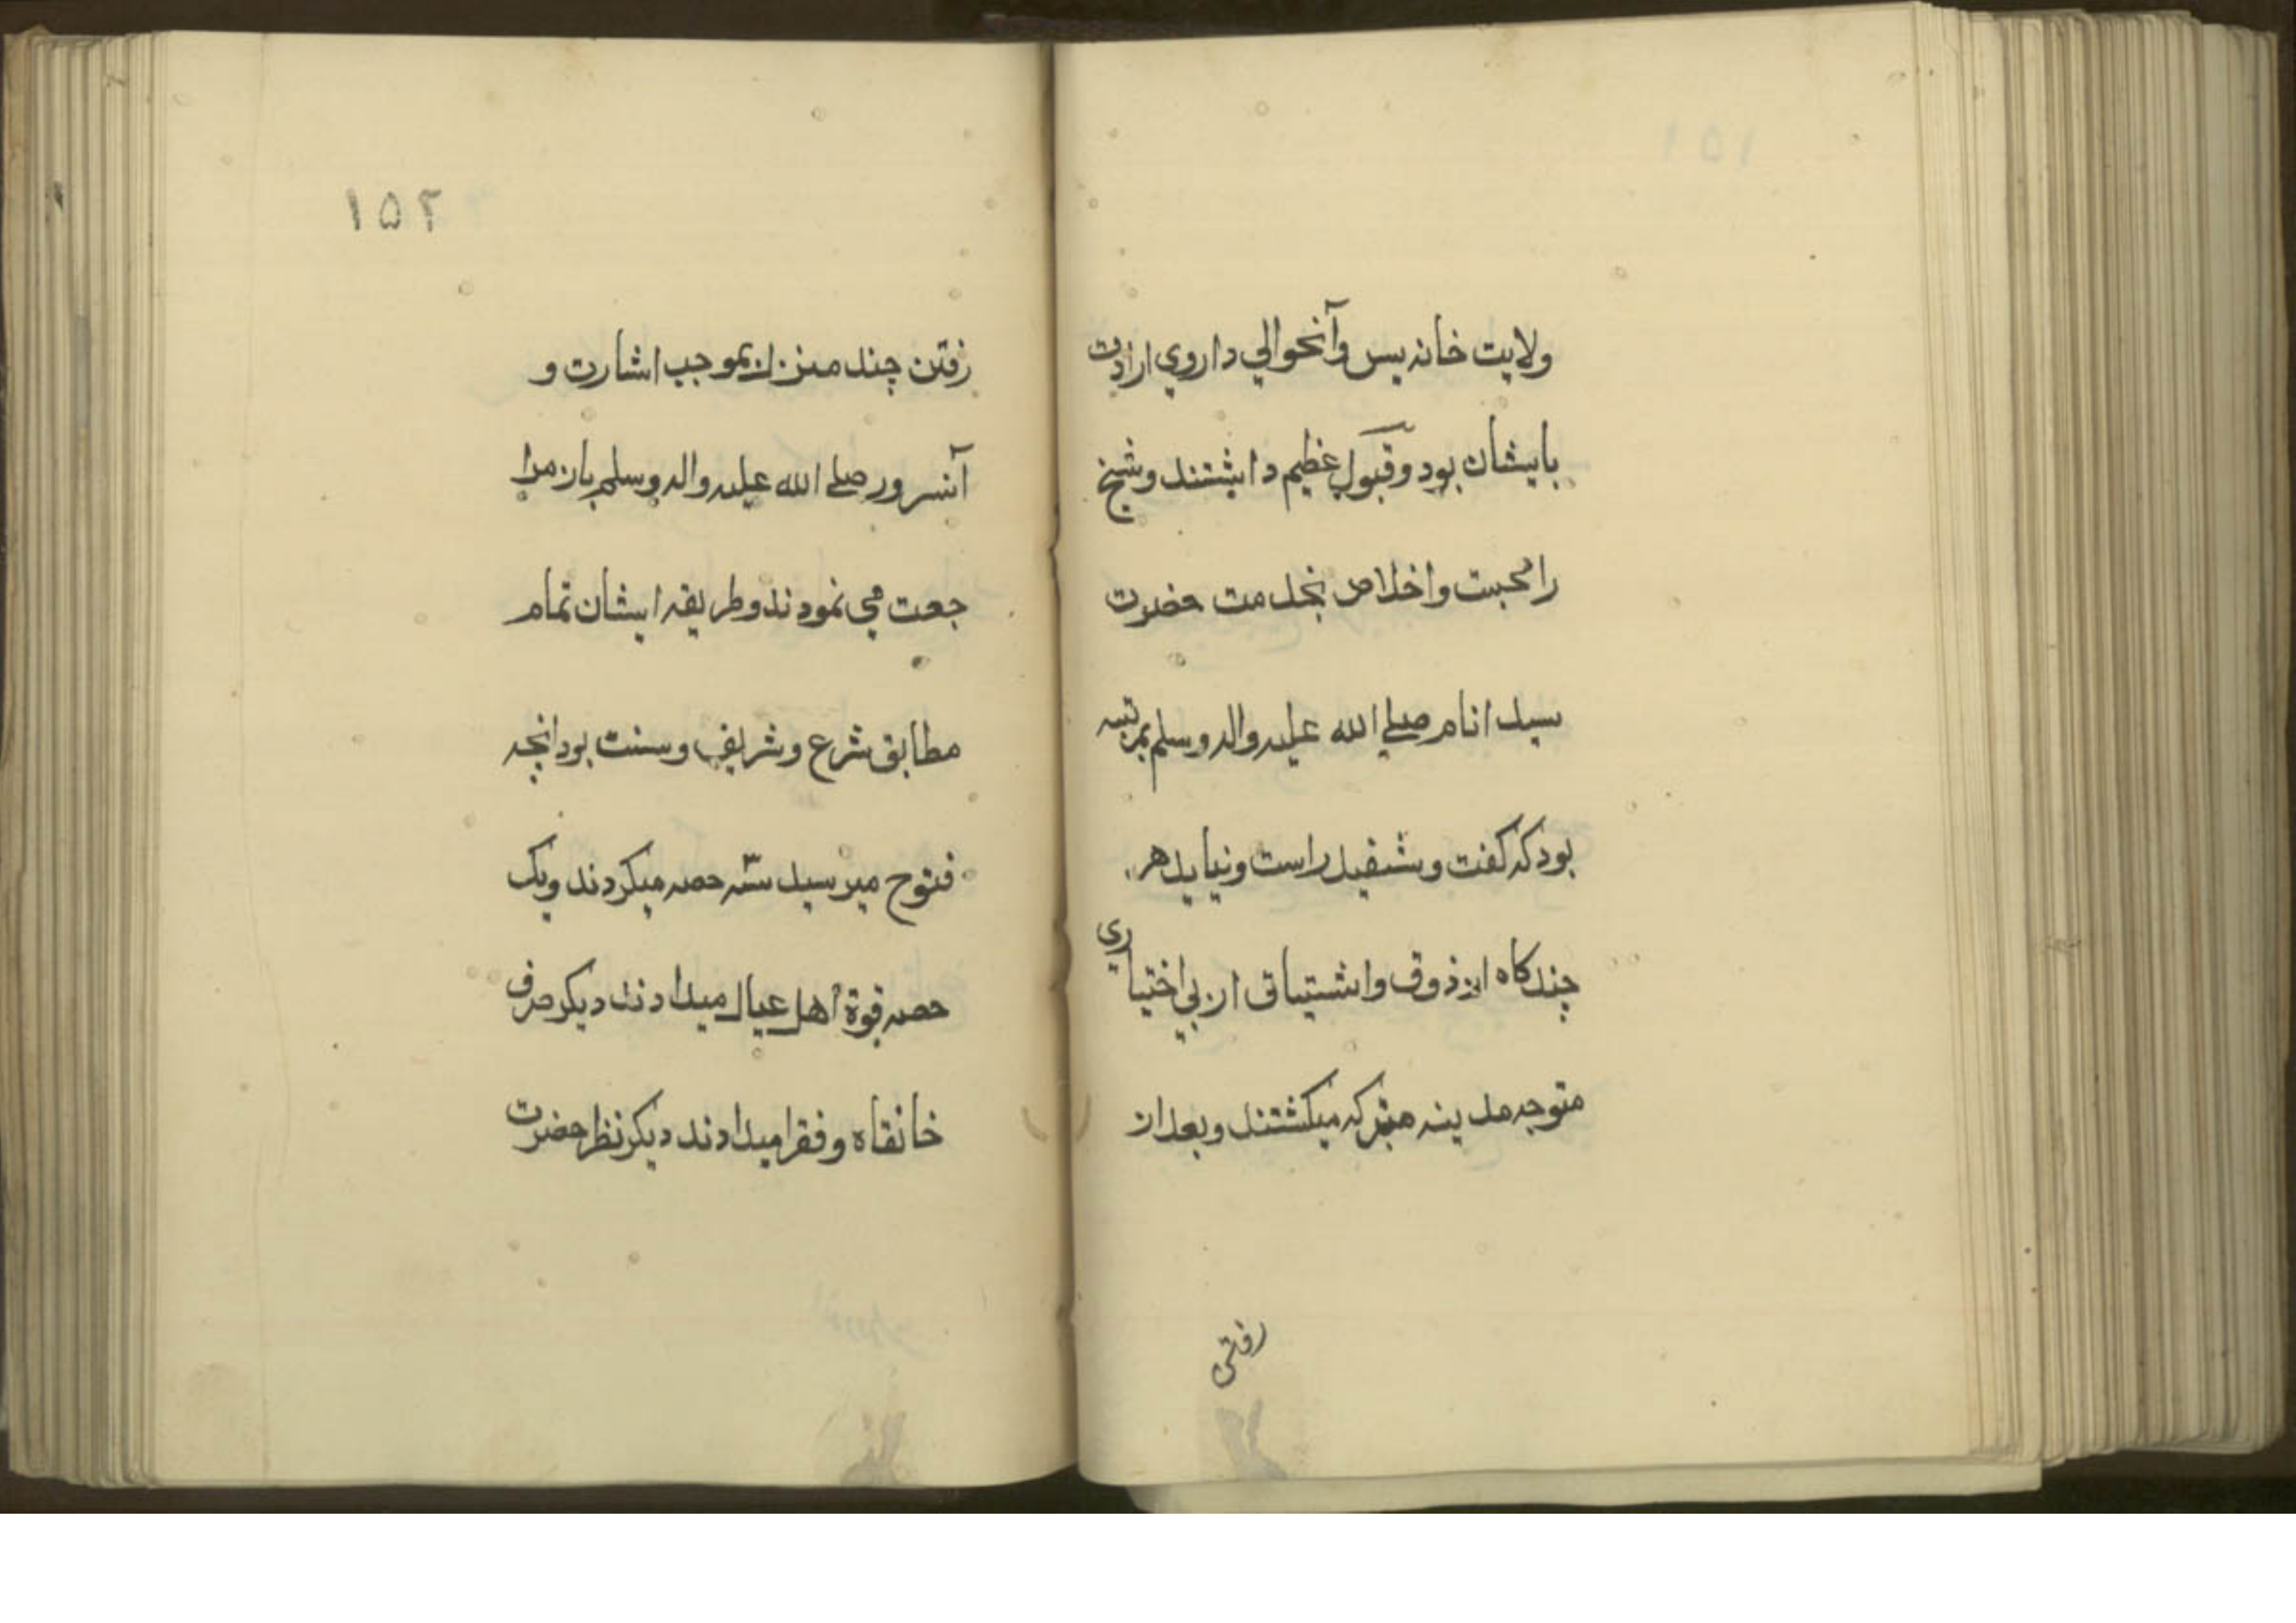 ۱۵۱
ولایت خاندیس وآنحوالي دا روي ارادت
بایشان بود وقبول عظیم داشتند وشیخ
را محبت واخلاص بخدمت حضرت
سید انام صلے الله علیه واله وسلم بمرتبه
بود که کفت وشنفید راست ونیاید هر
چند کاه از ذوق واشتیاق از بي اختیاري
متوجه مدینه متبرکه میکشتند وبعد از
رفتن
۱۵۲
رفتن چند منزل بموجب اشارت و
آنسرور صلے الله علیه واله وسلم باز مرا
جعت مي نمودند وطریقه ایشان تمام
مطابق شرع وشریف وسنت بود انچه
فتوح میرسید سّه حصه میکردند ویک
حصه قوة اهل عیال میدادند دیکر صرف
خانقاه وفقرا میدادند دیکر نظر حضرت